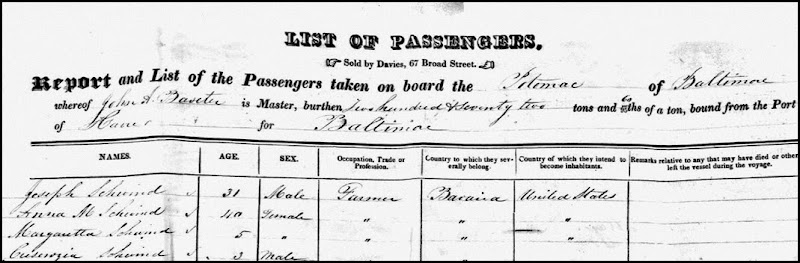 LIST OF PASSENGERS.
Sold by Davies, 67 Broad Street.
Report and List of the Passengers taken on board the Potomac of Baltimore
whereof John A. Baxter is Master, burthen Two hundred & seventy two tons and ths of a ton, bound from the Port
of Havre for Baltimore
NAMES. AGE. SEX. Occupation, Trade or Profession. Country to which they severally belong. Country of which they intend to become inhabitants. Remarks relative to any that may have died or other left the vessel during the voyage.
Joseph Schwind 31 Male Farmer Bavaria United States
Anna M Schwind 40 Female " " "
Margaretta Schwind 5 " " " "
Schwind 3 Male